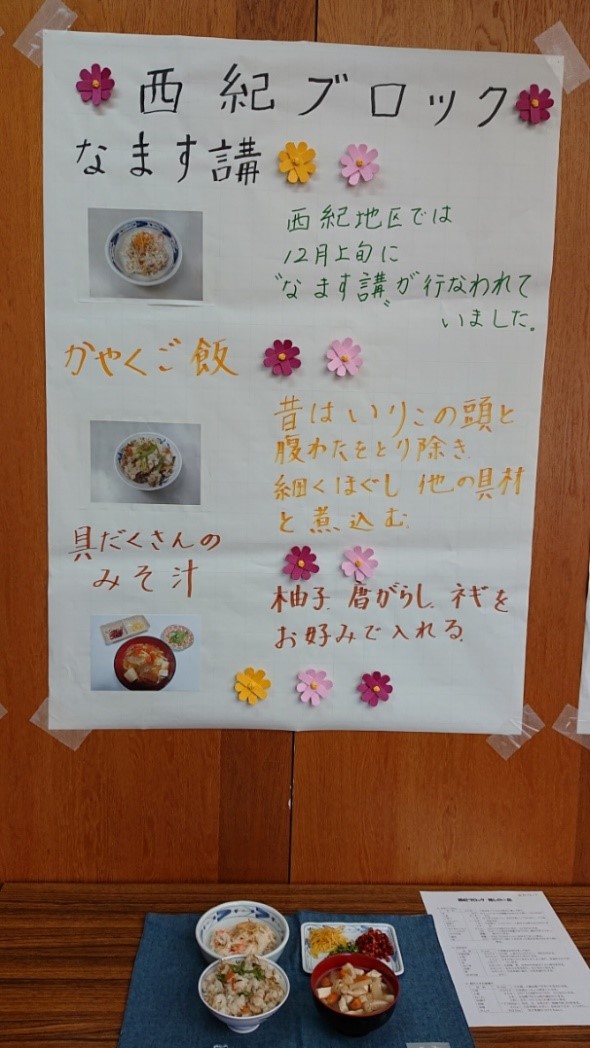 西紀ブロック
なます講
西紀地区では
12月上旬に
"なます講"が行なわれて
いました。
かやくご飯
昔はいりこの頭と
腹わたをとり除き
細くほぐし他の具材
と煮込む。
具だくさんの
みそ汁
柚子、唐がらし、ネギを
お好みで入れる。